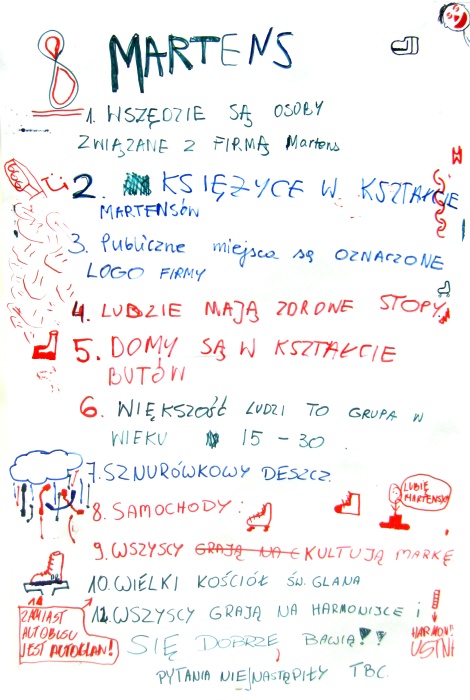 8 MARTENS
1. WSZĘDZIE SĄ OSOBY
ZWIĄZANE Z FIRMĄ Martens
2. KSIĘŻYCE W KSZTAŁCIE
MARTENSÓW
3. Publiczne miejsca są OZNACZONE
LOGO FIRMY
4. LUDZIE MAJĄ ZDROWE STOPY
5. DOMY SĄ W KSZTAŁCIE
BUTÓW
6. WIĘKSZOŚĆ LUDZI TO GRUPA W
WIEKU 15-30.
7. SZNURÓWKOWY DESZCZ
8. SAMOCHODY:
LUBIĘ
MARTENSY
9. WSZYSCY GRAJĄ NA KULTUJĄ MARKĘ
10. WIELKI KOŚCIÓŁ ŚW. GLANA
ZAMIAST
AUTOBUSU
JEST AUTOGLAN!
12. WSZYSCY GRAJĄ NA HARMONIJCE i
SIĘ DOBRZE BAWIĄ!!
USTNA
PYTANIA NIE NASTĄPIŁY TBC.